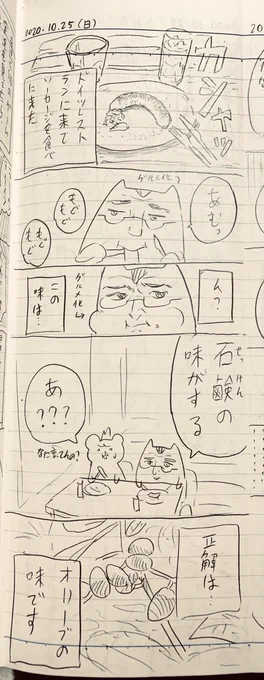 2020.10.25(日)
ドイツレスト
ランに来て
ソーセージを食べ
に来た
グルメ化
あむっ
もぐ
もぐ
もぐ
もぐ
ん?
グルメ化
この
味は…
石鹸の
せっけん
味がする
あ
???
なに言ってんの?
正解は…
オリーブの
味です